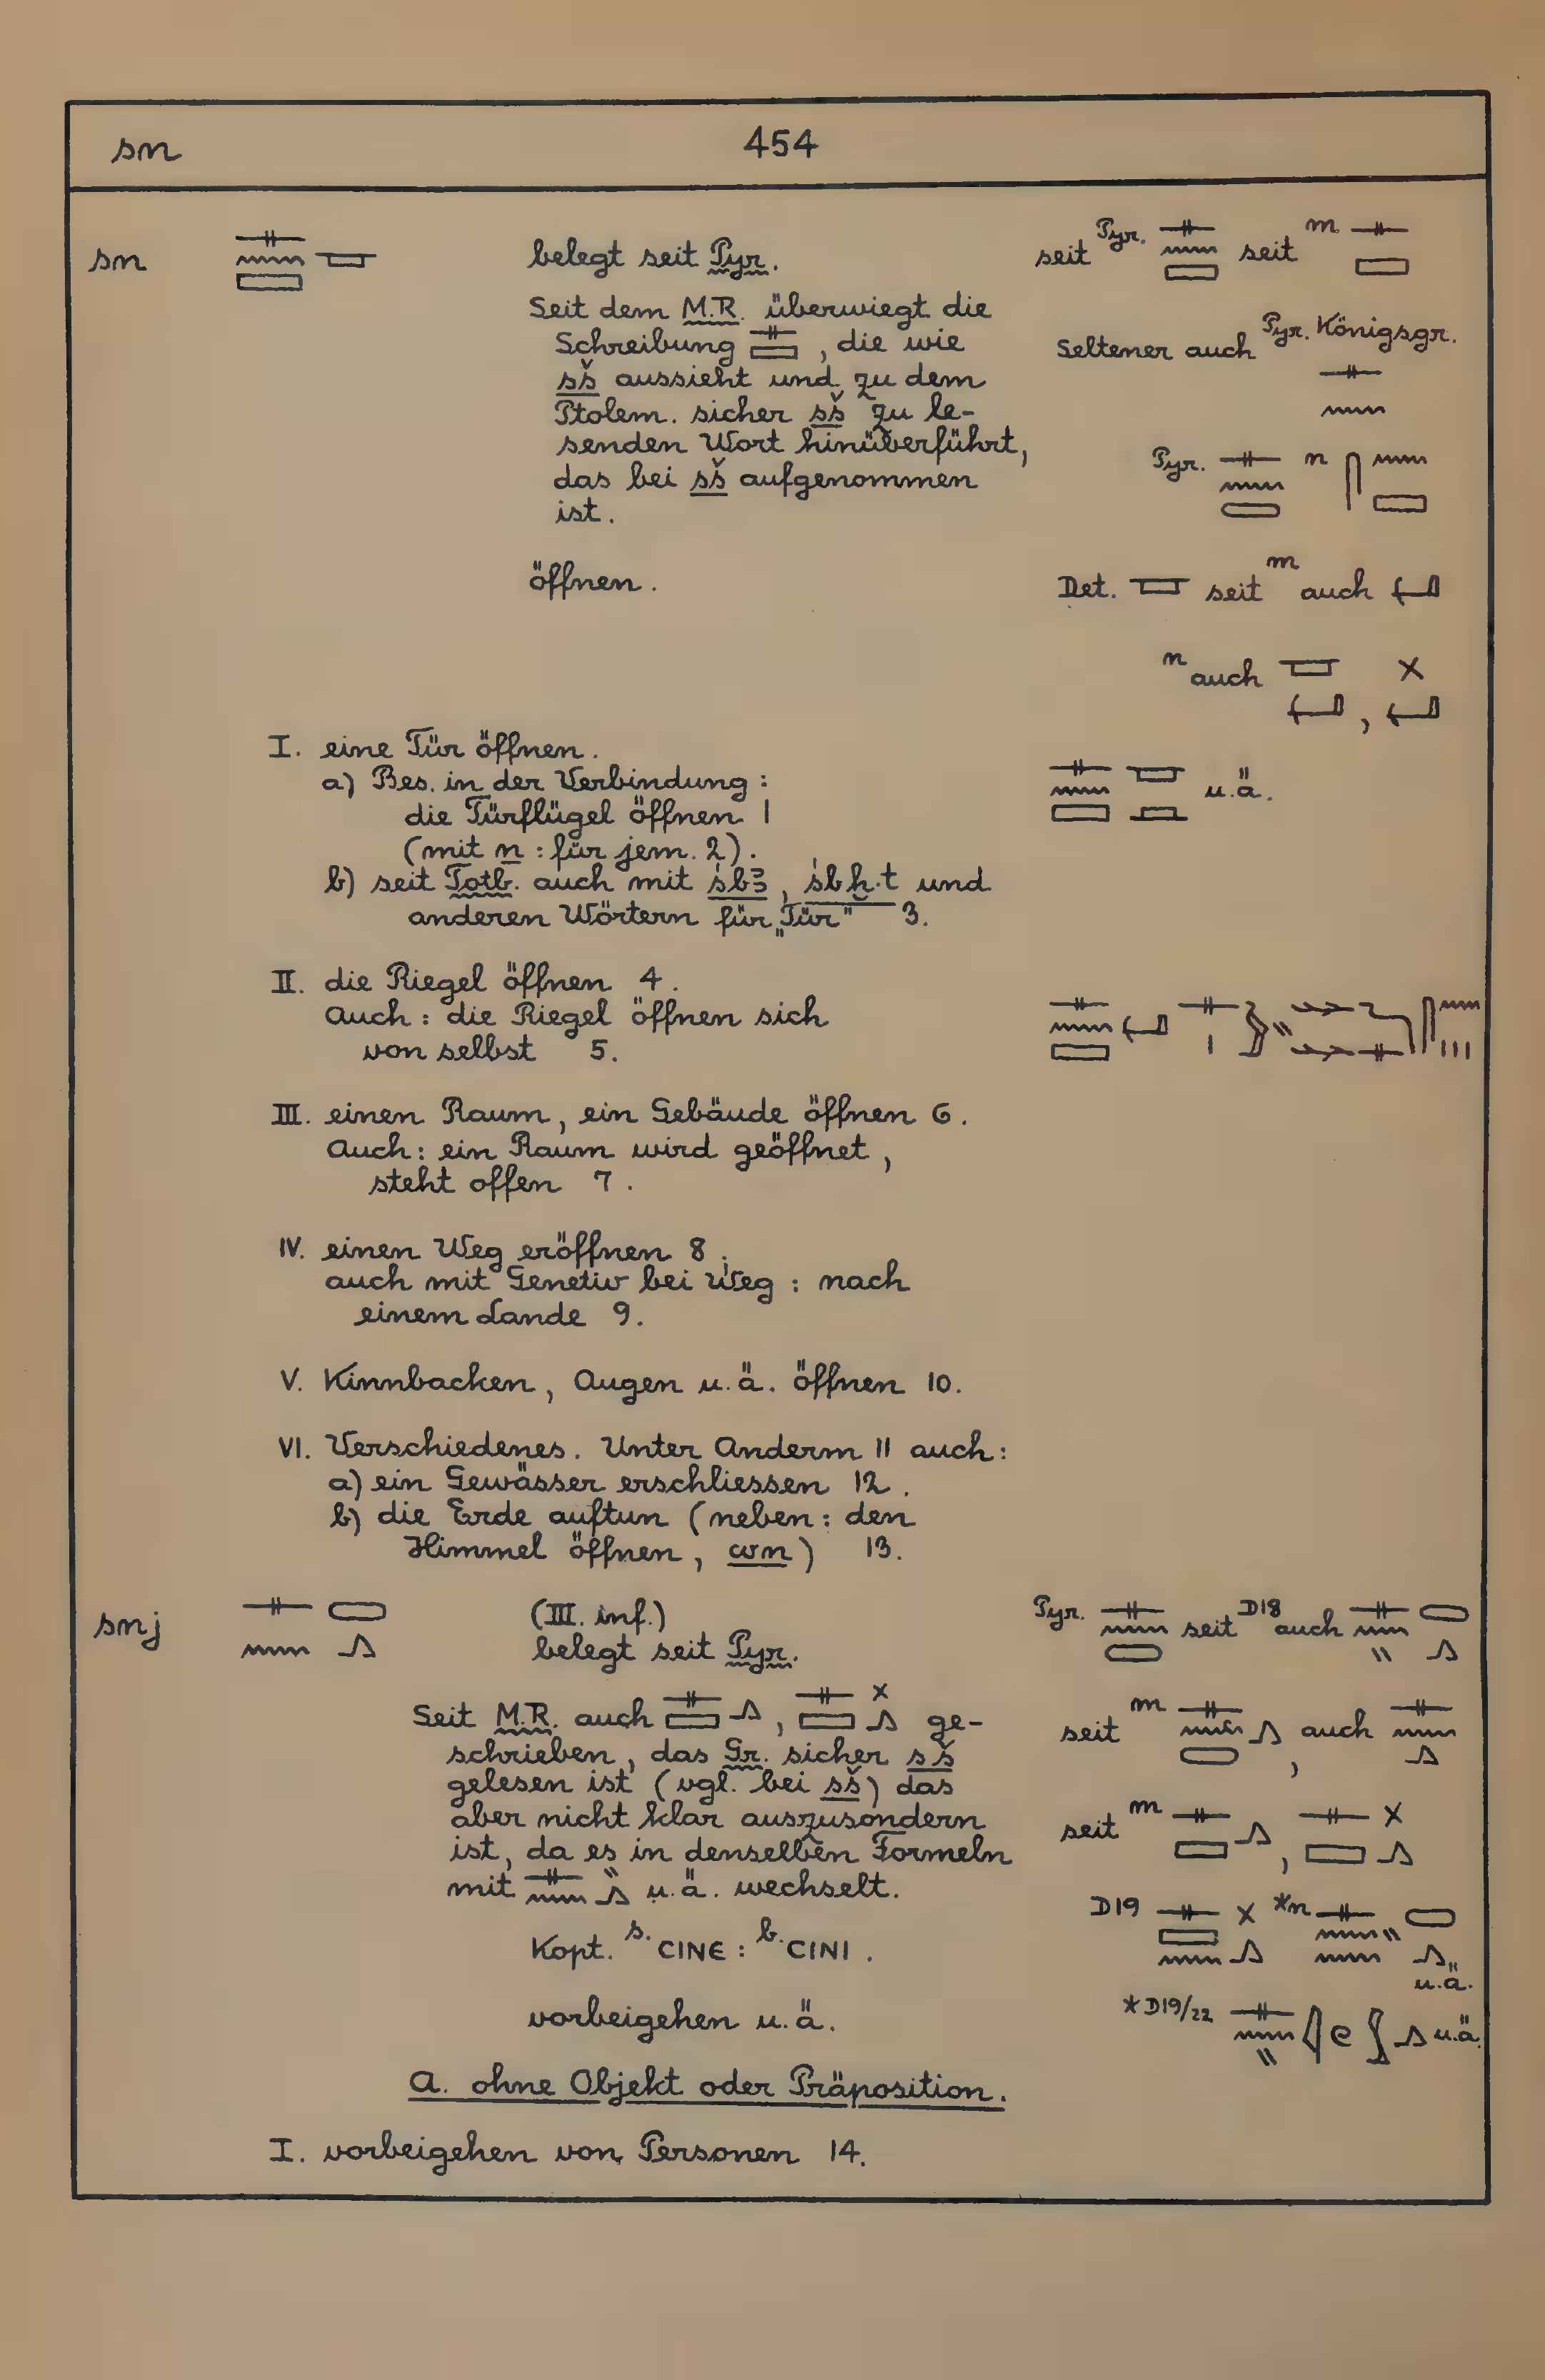 sn 454
sn
belegt seit Pyr.
Seit dem M.R. überwiegt die
Schreibung 𓊃𓈙, die wie
sš aussieht und zu dem
Ptolem. sicher sš zu le-
senden Wort hinüberführt,
das bei sš aufgenommen
ist.
seit Pyr. seit m
Seltener auch Pyr. Königsgr.
Pyr. n
öffnen.
Det. seit m auch
n auch ,
I. eine Tür öffnen.
a) Bes. in der Verbindung:
die Türflügel öffnen 1
(mit n: für jem. 2).
u.ä.
b) seit Totb. auch mit śbꜣ, śbḫ.t und
anderen Wörtern für „Tür" 3.
II. die Riegel öffnen 4.
Auch: die Riegel öffnen sich
von selbst 5.
III. einen Raum, ein Gebäude öffnen 6.
Auch: ein Raum wird geöffnet,
steht offen 7.
IV. einen Weg eröffnen 8.
auch mit Genetiv bei Weg: nach
einem Lande 9.
V. Kinnbacken, Augen u.ä. öffnen 10.
VI. Verschiedenes. Unter Anderm 11 auch:
a) ein Gewässer erschliessen 12.
b) die Erde auftun (neben: den
Himmel öffnen, wn) 13.
snj
(III. inf.)
belegt seit Pyr.
Seit M.R. auch , ge-
schrieben, das Gr. sicher sš
gelesen ist (vgl. bei sš) das
aber nicht klar auszusondern
ist, da es in denselben Formeln
mit u.ä. wechselt.
Kopt. s. ⲤⲒⲚⲈ : b. ⲤⲒⲚⲒ.
Pyr. seit D18 auch
seit m , auch
seit m ,
D19 *n u.ä.
*D19/22 u.ä.
vorbeigehen u.ä.
A. ohne Objekt oder Präposition.
I. vorbeigehen von Personen 14.